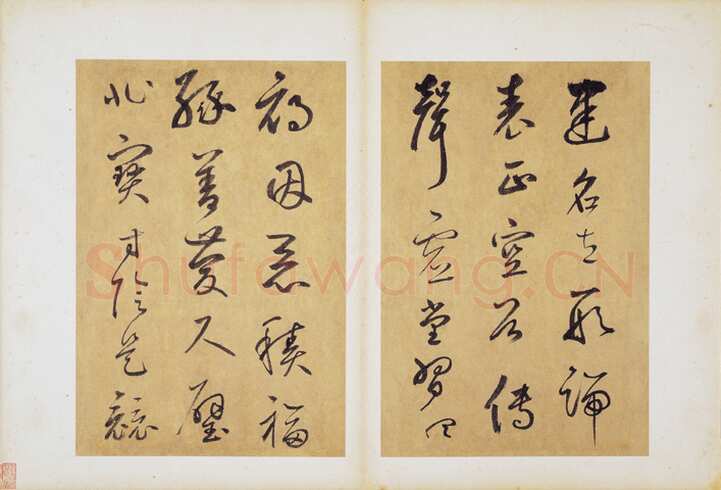 建名立形端
表正空谷傳
聲虛堂習聽
禍因惡積福
緣善慶尺璧
非寶寸陰是競
Shufawang.CN